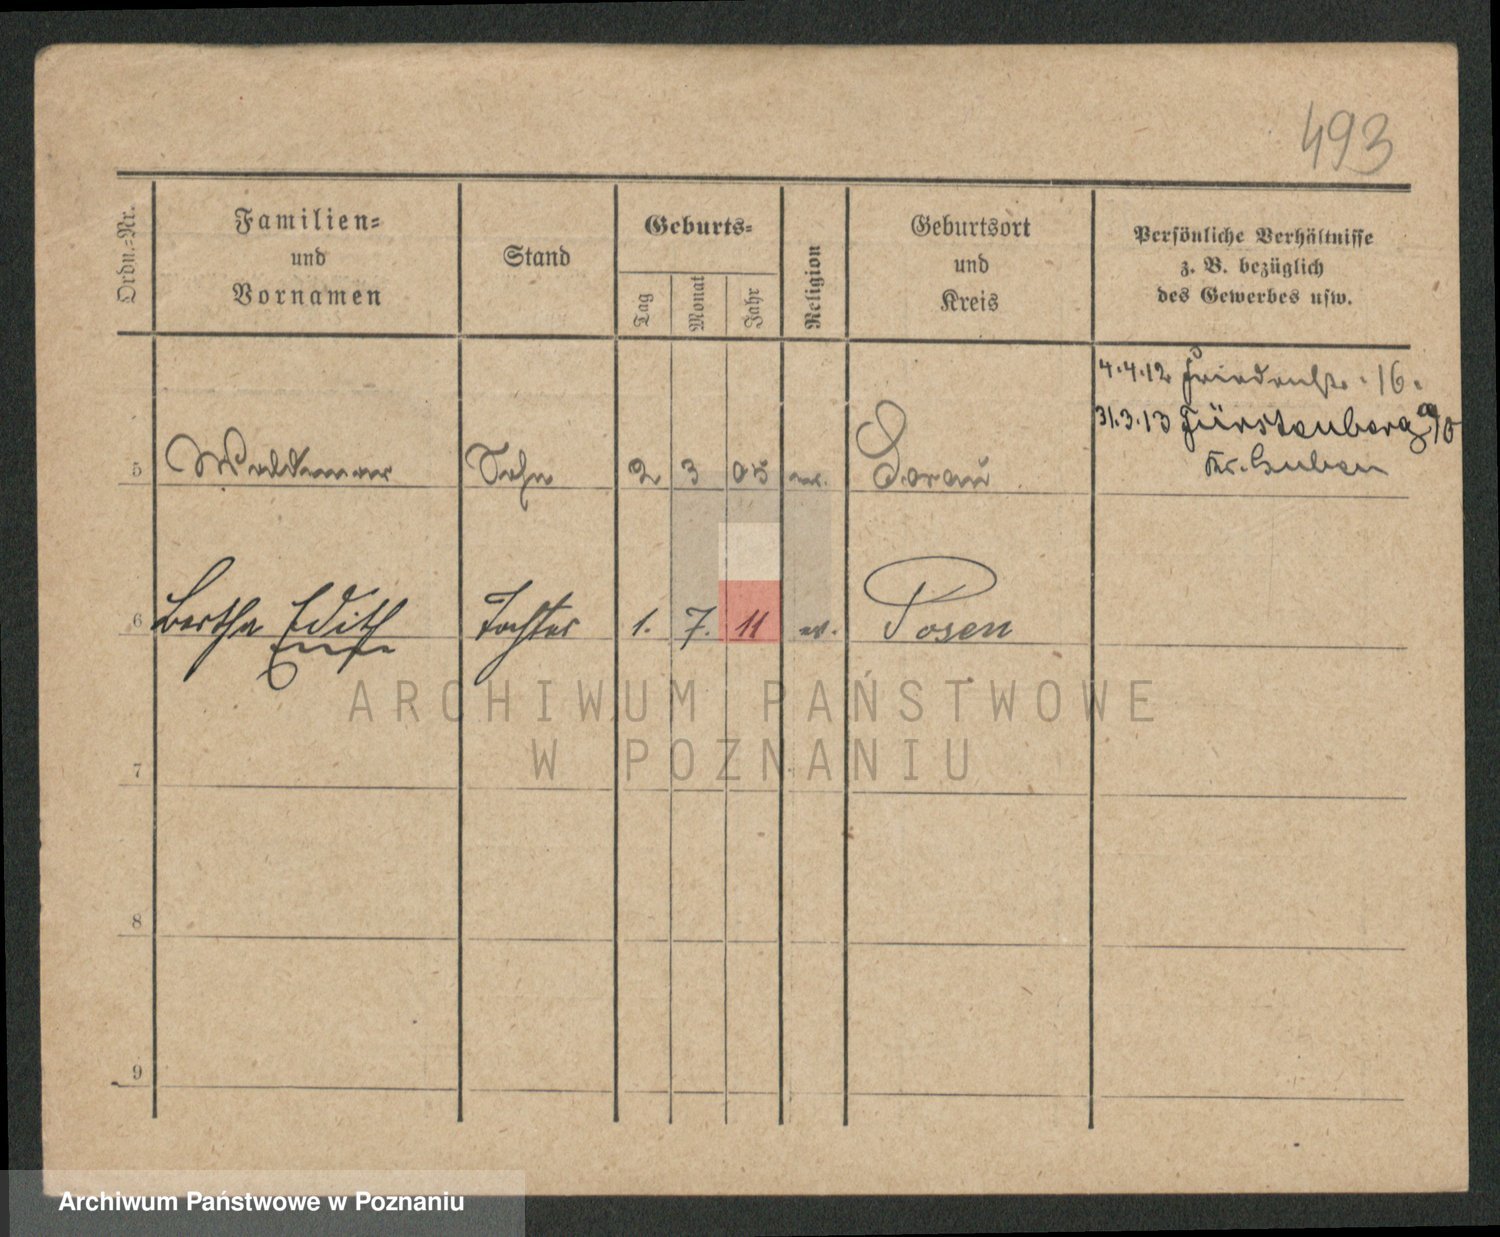 493
Ordn.=Nr.
Familien=
und
Vornamen
Stand
Geburts=
Tag
Monat
Jahr
Religion
Geburtsort
und
Kreis
Persönliche Verhältnisse
z. B. bezüglich
des Gewerbes usw.
4.4.12 Friedrichstr. 16.
31.3.13 Fürstenberg a/O
Kr. Guben
5 Waldemar Sohn 2 3 05 ev. Sorau
6 Bertha Edith Tochter 1. 7. 11 ev. Posen
ARCHIWUM PAŃSTWOWE
W POZNANIU
7
8
9
Archiwum Państwowe w Poznaniu